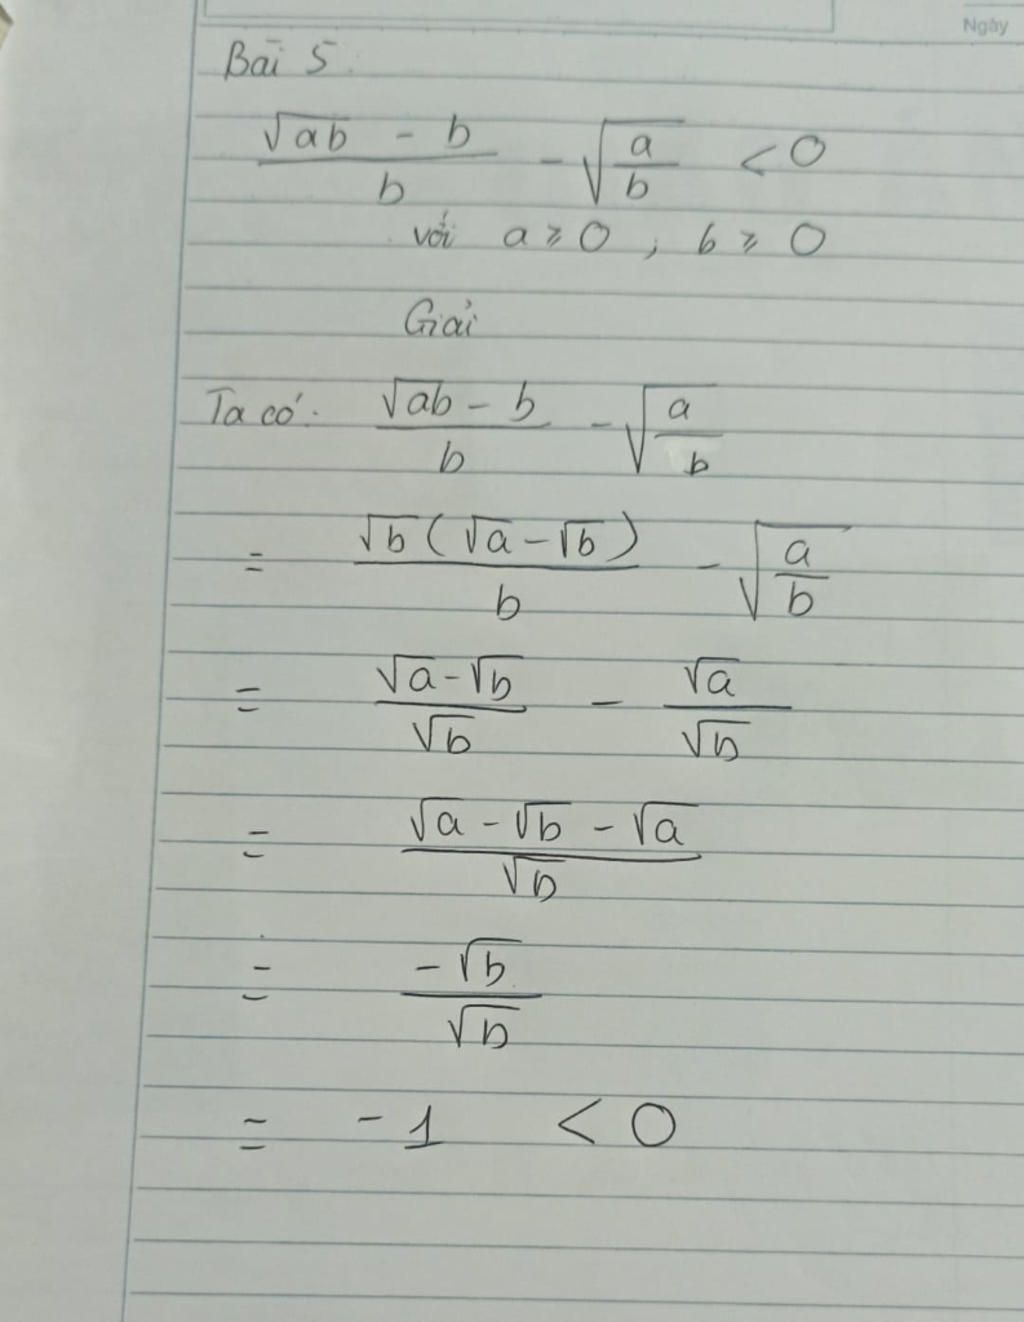 Ngày
Bài 5.
\frac{\sqrt{ab} - b}{b} - \sqrt{\frac{a}{b}} < 0
với a ⩾ 0 , b ⩾ 0
Giải
Ta có: \frac{\sqrt{ab} - b}{b} - \sqrt{\frac{a}{b}}
= \frac{\sqrt{b}(\sqrt{a} - \sqrt{b})}{b} - \sqrt{\frac{a}{b}}
= \frac{\sqrt{a} - \sqrt{b}}{\sqrt{b}} - \frac{\sqrt{a}}{\sqrt{b}}
= \frac{\sqrt{a} - \sqrt{b} - \sqrt{a}}{\sqrt{b}}
= \frac{-\sqrt{b}}{\sqrt{b}}
= -1 < 0